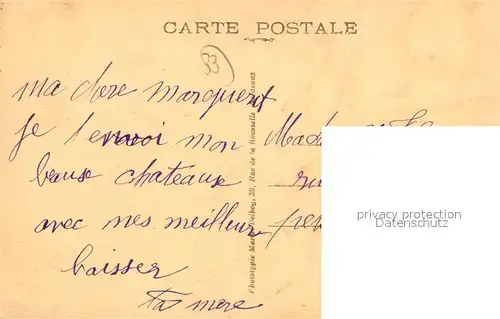 CARTE POSTALE
33
ma chere marguerit
je t'envoi mon
beause chateaux
avec mes meilleur
baisser
ta mere
Phototypie Marc Delboy, 39, Rue de la Rousselle
Mada
ru
privacy protection